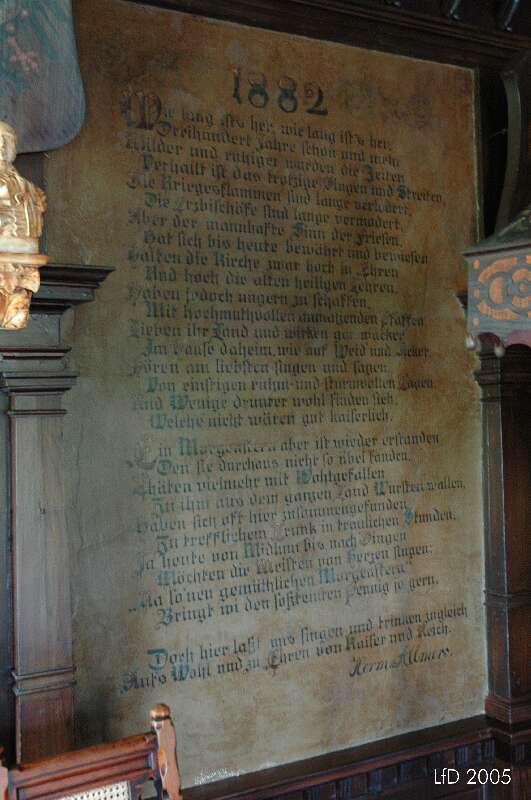 1882
Wie lang ist's her, wie lang ist's her,
Dreihundert Jahre schon und mehr
Milder und ruhiger wurden die Zeiten
Verhallt ist das trotzige Ringen und Streiten,
Die Kriegesflammen sind lange verlodert,
Die Erzbischöfe sind lange vermodert,
Aber der mannhafte Sinn der Friesen,
Hat sich bis heute bewährt und bewiesen
Halten die Kirche zwar hoch in Ehren
Und hoch die alten heiligen Lehren,
Haben jedoch ungern zu schaffen,
Mit hochmuthvollen anmaßenden Pfaffen
Lieben ihr Land und wirken gar wacker
Im Hause daheim, wie auf Weid und Acker
Hören am liebsten singen und sagen
Von einstigen ruhm- und sturmvollen Tagen
Und Wenige drunter wohl finden sich,
Welche nicht wären gut kaiserlich.
Ein Morgenstern aber ist wieder erstanden
Den sie durchaus nicht so übel fanden,
Thäten vielmehr mit Wohlgefallen
Zu ihm aus dem ganzen Land Wursten wallen,
Haben sich oft hier zusammengefunden
Zu trefflichem Trunk in traulichen Stunden,
Ja heute von Midlum bis nach Dingen
Möchten die Meisten von Herzen singen:
"Na so'nen gemüthlichen Morgenstern
Bringt wi den soßteinten Pennig so gern,
Doch hier laßt uns singen und trinken zugleich
Auf's Wohl und zu Ehren von Kaiser und Reich.
Herm. Allmers.
LfD 2005